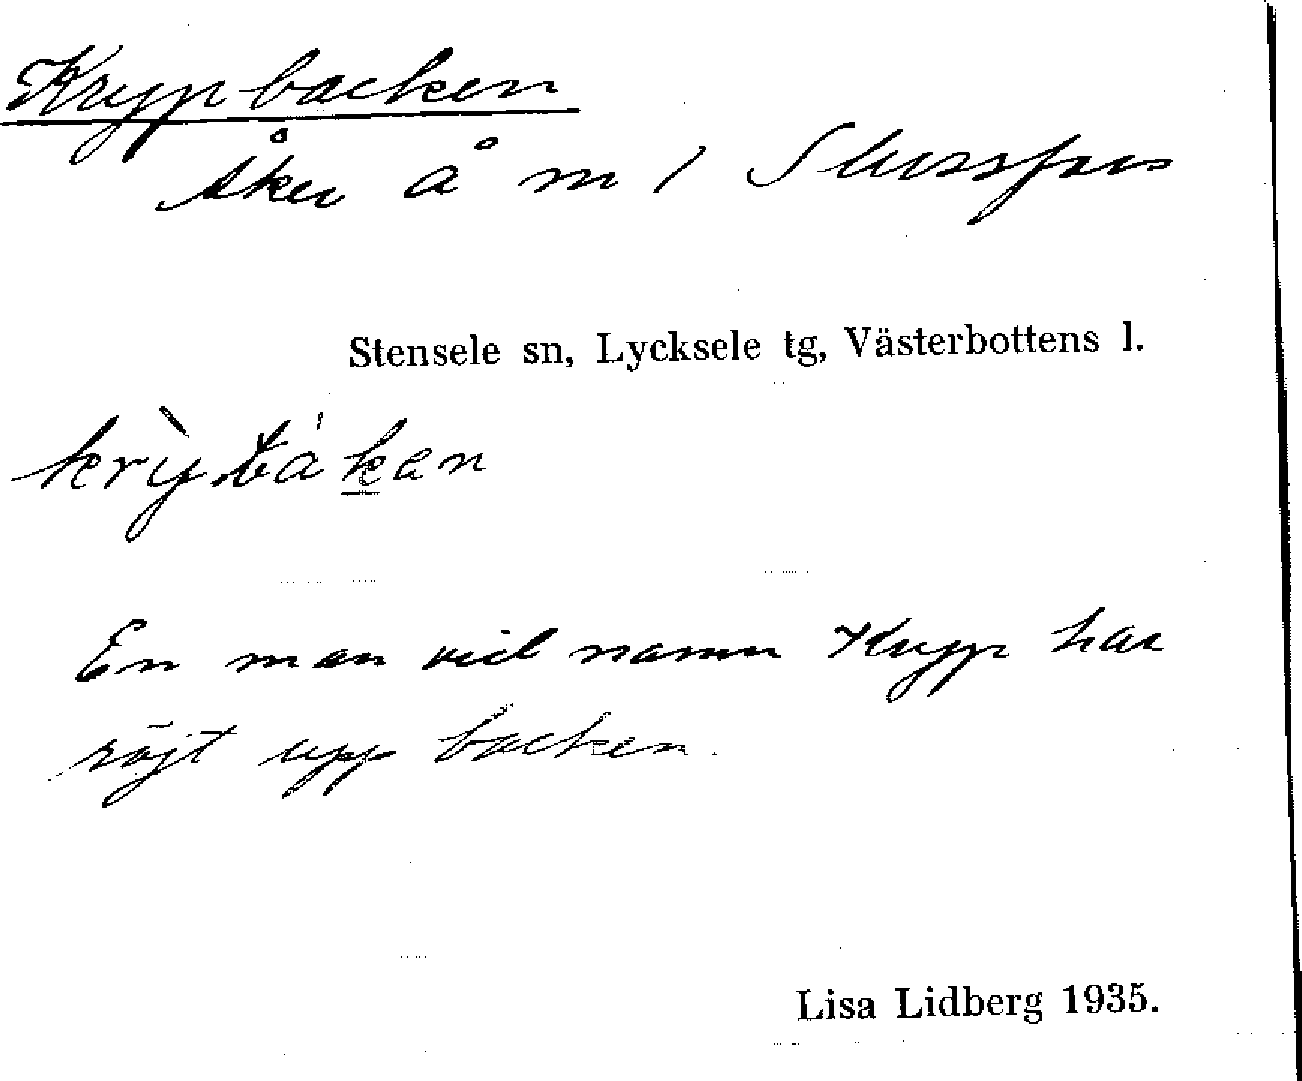 Krypbacken
åker å m 1 Slussfors
Stensele sn, Lycksele tg, Västerbottens l.
En man vid namn Krypp har
röjt upp backen.
Lisa Lidberg 1935.